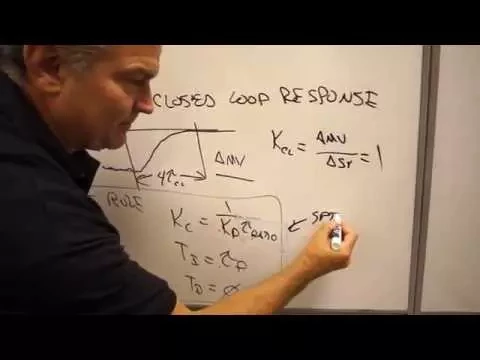 CLOSED LOOP RESPONSE
4τCL
ΔMV
KCL = ΔMV / ΔSP = 1
RULE
KC = 1 / KP τRATIO ← SP
TI = τP
TD = ∅